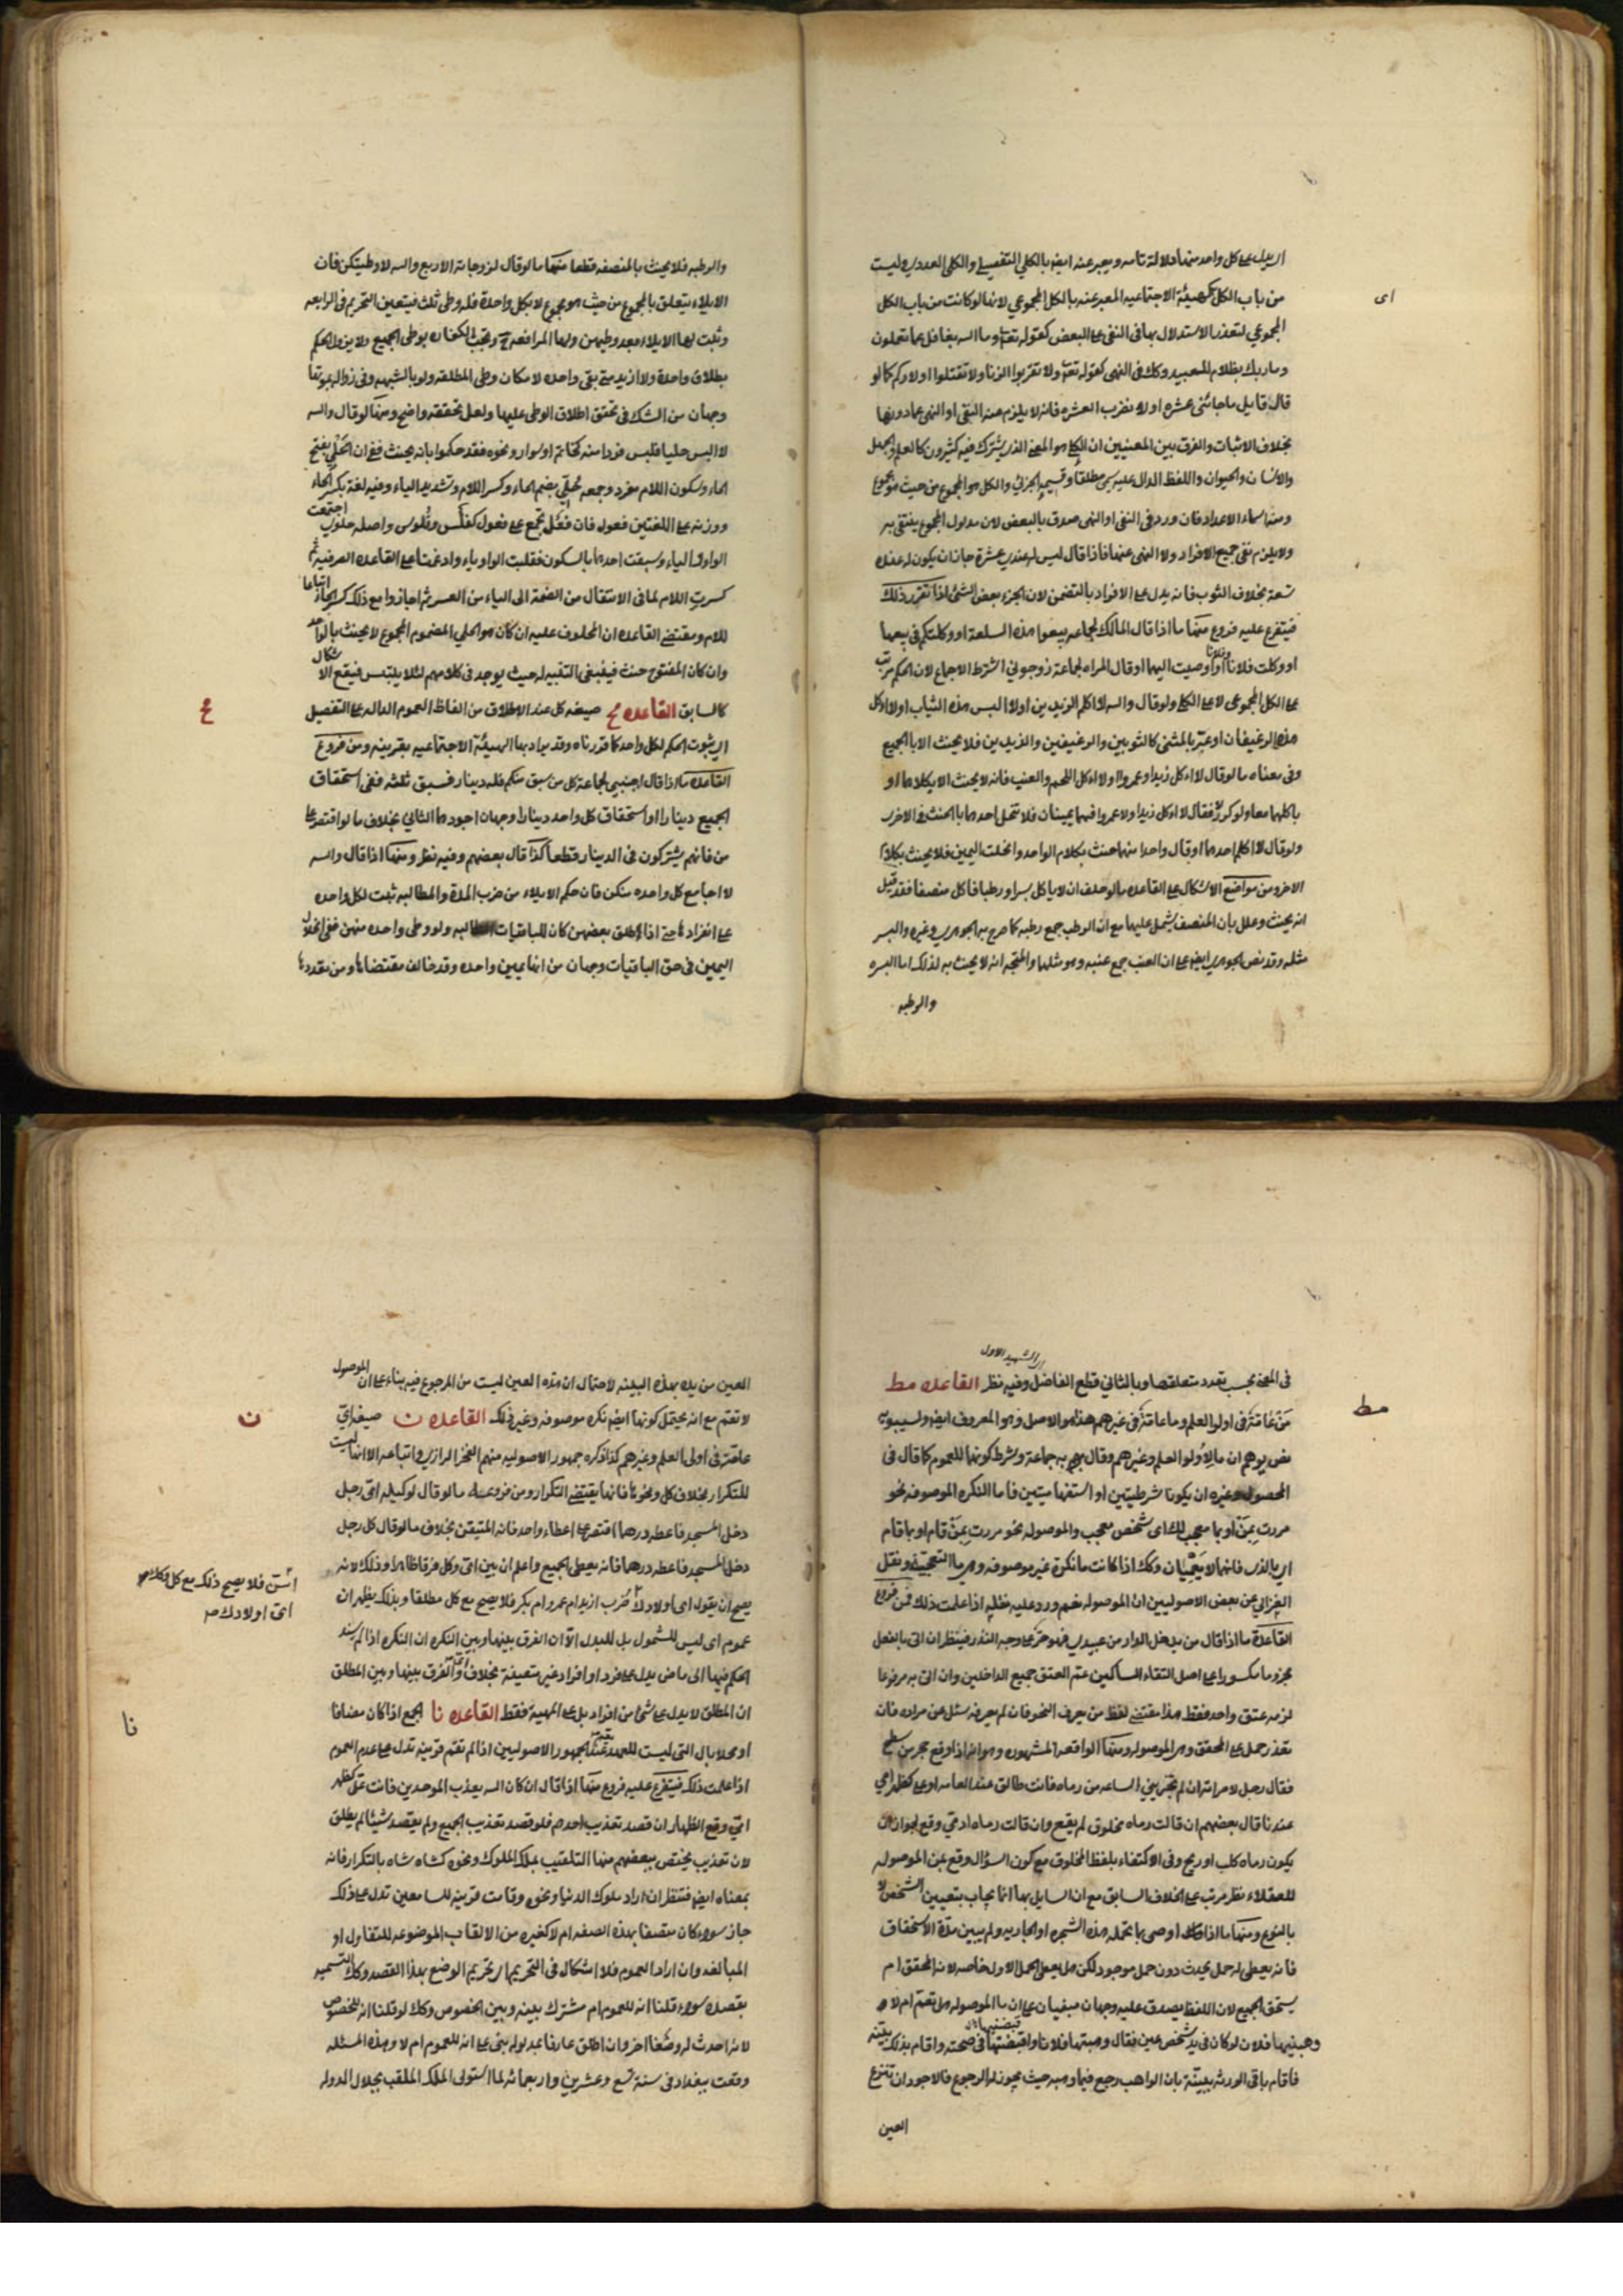 اى
اى يدل على كل واحد منها دلالة تامه ويعبر عنه ايضا بالكلى التفصيلى والكلى العددى وليست
من باب الكل كهيئة الاجتماعيه المعبر عنه بالكل المجموعي لانها لو كانت من باب الكل
المجموعي لتعذر الاستدلال بها فى النفى على البعض كقوله تعه وما الله بغافل عما تعملون
وما ربك بظلام للعبيد وكك فى النهى كقوله تعه ولا تقربوا الزنا ولا تقتلوا اولادكم كما لو
قال قايل ما جائنى عشره او لا تضرب العشره فانه لا يلزم منه النفى او النهى عما دونها
بخلاف الاثبات والفرق بين المعنيين ان الكلى هو المعنى الذى يشترك فيه كثيرون كالعلم والجهل
والانسان والحيوان واللفظ الدال عليه يسمى مطلقا وقسيمه الجزئى والكل هو المجموع من حيث هو مجموع
ومنه اسماء الاعداد فان ورد فى النفى او النهى صدق بالبعض لان مدلول المجموع ينتفى به
ولا يلزم نفى جميع الافراد ولا النهى عنها فاذا قال ليس له عندى عشرة جاز ان يكون له عنده
تسعة بخلاف الثبوت فانه يدل على الافراد بالتضمن لان الجزء بعض الشئ اذا تقرر ذلك
فيتفرع عليه فروع منها ما اذا قال المالك لجماعه بيعوا هذه السلعة او وكلتكم فى بيعها
او وكلت فلانا وفلانا او اوصيت اليهما او قال المراه لجماعة زوجونى اشترط الاجماع لان الحكم مرتب
على الكل المجموعى لا على الكلى ولو قال والله لا اكلم الزيدين او لا البس هذه الثياب او لا اكل
هذه الرغيفان او عبر بالمثنى كالثوبين والرغيفين والزيدين فلا يحنث الا بالجميع
وفى معناه ما لو قال لا اكل زيدا وعمروا او لا اكل اللحم والعنب فانه لا يحنث الا بكلامهما او
باكلهما معا ولو كرر لا فقال لا اكل زيدا ولا عمروا فهما يمينان فلا تنحل احدهما بالحنث فى الاخرى
ولو قال لا اكلم احدهما او قال واحدا منهما حنث بكلام الواحد وانحلت اليمين فلا يحنث بكلام
الاخر ومن مواضع الاشكال على القاعده ما لو حلف ان لا ياكل بسرا ورطبا فاكل منصفا فقد قيل
انه يحنث وعلل بان المنصف يشمل عليهما مع ان الرطب جمع رطبه كما صرح به الجوهرى وغيره والبسر
مثله وقد نص الجوهرى ايضا على ان العنب جمع عنبه وهو مثلهما والمتجه انه لا يحنث به لذلك اما البسره
والرطبه
والرطبه فلا يحنث بالمنصفه قطعا منها ما لو قال لزوجاته الاربع والله لا وطيتكن فان
الايلاء يتعلق بالمجموع من حيث هو مجموع لا بكل واحدة فله وطى ثلث فيتعين التحريم فى الرابعه
ويثبت لها الايلاء بعد وطيهن ولها المرافعه ح وتجب الكفاره بوطى الجميع ولا يزول الحكم
بطلاق واحدة ولا ازيد متى بقى واحده لامكان وطى المطلقه ولو بالشبهه وفى زواله بموتها
وجهان من الشك فى تحقق اطلاق الوطى عليها ولعل تحققه واضح ومنها لو قال والله
لا البس حليا فلبس فردا منه كخاتم او سوار ونحوه فقد حكموا بانه يحنث ففى ان الحلى بفتح
الحاء وسكون اللام مفرد وجمعه حلى بضم الحاء وكسر اللام وتشديد الياء وفيه لغة بكسر الحاء
ووزنه على اللغتين فعول فان فعل يجمع على فعول كفلس وفلوس واصله حلوى اجتمعت
الواو والياء وسبقت احدهما بالسكون فقلبت الواو ياء وادغمتا على القاعده الصرفيه ثم
كسرت اللام لما فى الانتقال من الضمة الى الياء من العسر ثم اجازوا مع ذلك كسر الحاء اتباعا
للام ومقتضى القاعده ان المحلوف عليه ان كان هو الحلى المضموم المجموع لا يحنث بالواحد
وان كان المفتوح حنث فينبغى التنبيه له حيث يوجد فى كلامهم لئلا يلتبس فيقع الاشكال
كالسابق القاعده مح صيغه كل عند الاطلاق من الفاظ العموم الداله على التفصيل
مح
اى ثبوت الحكم لكل واحد كما قررناه وقد يراد بها الهيئة الاجتماعيه بقرينه ومن فروع
القاعده ما اذا قال اجنبى لجماعة كل من سبق منكم فله دينار فسبق ثلثه ففى استحقاق
الجميع دينارا او استحقاق كل واحد دينارا وجهان اجودهما الثانى بخلاف ما لو اقتصر على
من فانهم يشتركون فى الدينار قطعا كذا قال بعضهم وفيه نظر ومنها اذا قال والله
لا اجامع كل واحده منكن فان حكم الايلاء من ضرب المدة والمطالبه ثبت لكل واحده
على انفرادها حتى اذا طلق بعضهن كان للباقيات المطالبه ولو وطى واحده منهن ففى انحلال
اليمين فى حق الباقيات وجهان من انها يمين واحده وقد خالف مقتضاها ومن تعددها
الشهيد الاول
فى المعنى بحسب تعدد متعلقها وبالثانى قطع الفاضل وفيه نظر القاعده مط
مط
من عامة فى اولوا العلم وما عامة فى غيرهم هذا هو الاصل وهو المعروف ايضا ولسيبويه
نص يوهم ان ما لاولوا العلم وغيرهم وقال به جماعة وشرط كونها للعموم كما قال فى
المحصول وغيره ان يكونا شرطيتين او استفهاميتين فاما النكره الموصوفه نحو
مررت بمن او بما معجب لك اى شخص معجب والموصوله نحو مررت بمن قام او بما قام
اى بالذى فانهما لا يعمان وكك اذا كانت ما نكرة غير موصوفه وهى ما التعجبيه ونقل
الغزالى عن بعض الاصوليين ان الموصوله تعم ورد عليه اذا علمت ذلك فمن فروع
القاعدة ما اذا قال من يدخل الدار من عبيدى فهو حر على وجه النذر فينظر ان اتى بالفعل
مجزوما مكسورا على اصل التقاء الساكنين عم العتق جميع الداخلين وان اتى به مرفوعا
لزمه عتق واحد فقط هذا مقتضى لفظ من يعرف النحو فان لم يعرفه سئل عن مراده فان
تعذر حمل على المحقق وهو الموصوله ومنها الواقعه المشهوره وهو انه اذا وقع حجر من سطح
فقال رجل لامراته ان لم تخبرينى الساعه من رماه فانت طالق عند العامه او على كظهر امى
عندنا قال بعضهم ان قالت رماه مخلوق لم يقع وان قالت رماه ادمى وقع لجواز ان
يكون رماه كلب او ريح وفى الاكتفاء بلفظ المخلوق مع كون السؤال وقع بمن الموصوله
للعقلاء نظر مرتب على الخلاف السابق مع ان السايل بها انما يجاب بتعيين الشخص لا
بالنوع ومنها ما اذا اوصى بما تحمله هذه الشجره او الجاريه ولم يبين مدة الاستحقاق
فانه يعطى له حمل يحدث دون حمل موجود لكن هل يعطى الحمل الاول خاصه لانه المحقق ام
يستحق الجميع لان اللفظ يصدق عليه وجهان مبنيان على ان ما الموصوله هل تعم ام لا
وهبنيها فلان لو كان فى يد شخص عين فقال وهبتها فلانا واقبضنيها فى صحته واقام بذلك بينه
فاقام باقى الورثه ببينة بان الواهب رجع فيما وهبه حيث يجوز له الرجوع فالاجود ان تنزع
العين
العين من يده بهذه البينه لاحتمال ان هذه العين ليست من المرجوع فيه بناء على ان الموصول
لا تعم مع انه يحتمل كونها ايضا نكره موصوفه وغير ذلك القاعده ن صيغه اى
ن
عامة فى اولى العلم وغيرهم كذا ذكره جمهور الاصوليه منهم الفخر الرازى واتباعه الا انها ليست
للتكرار بخلاف كل ونحوها فانها يقتضى التكرار ومن فروعه ما لو قال لوكيله اى رجل
دخل المسجد فاعطه درهما اقتصر على اعطاء واحد فانه المتيقن بخلاف ما لو قال كل رجل
دخل المسجد فاعطه درهما فانه يعطى الجميع واعلم ان بين اى وكل فرقا ظاهرا وذلك لانه
اشتر فلا يصح ذلك مع كل وكك
اى اولادك صه
يصح ان يقول اى اولادك ضرب ازيد ام عمرو ام بكر فلا يصح مع كل مطلقا وبذلك يظهر ان
عموم اى ليس للشمول بل للبدل الا ان الفرق بينها وبين النكره ان النكره اذا لم يسند
الحكم فيها الى ماض يدل على فرد او افراد غير متعينة بخلاف اى والفرق بينها وبين المطلق
ان المطلق لا يدل على شئ من افراد بل على المهية فقط القاعده نا الجمع اذا كان مضافا
نا
او محلا بال التى ليست للعهد يعم عند الجمهور الاصوليين اذا لم تقم قرينه تدل على عدم العموم
اذا علمت ذلك فيتفرع عليه فروع منها اذا قال ان كان الله يعذب الموحدين فانت على كظهر
امى وقع الظهار ان قصد تعذيب احدهم فلو قصد تعذيب الجميع ولم يقصد شيئا لم يطلق
لان تعذيب يختص ببعضهم منها التلقيب بملك الملوك ونحوه كشاه شاه بالتكرار فانه
بمعناه ايضا فينظر ان اراد ملوك الدنيا ونحوه وقامت قرينه للسامعين تدل على ذلك
جاز سواء كان متصفا بهذه الصفه ام لا كغيره من الالقاب الموضوعه للتفاول او
المبالغه وان اراد العموم فلا اشكال فى التحريم اى تحريم الوضع بهذا القصد وكك التسميه
بقصده سواء قلنا انه للعموم ام مشترك بينه وبين الخصوص وكك لو قلنا انه للخصوص
لانه احدث له وضعا اخر وان اطلق عارفا بمدلوله بنى على انه للعموم ام لا وهذه المسئله
وقعت ببغداد فى سنة تسع وعشرين واربعمائه لما استولى الملك الملقب بجلال الدوله